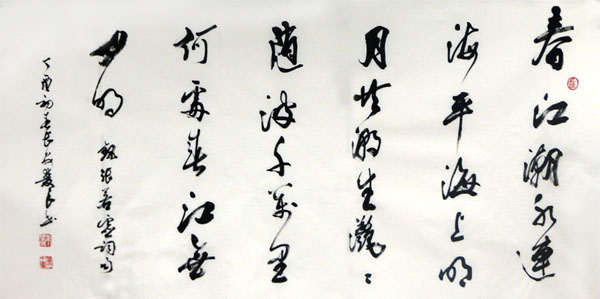 春江潮水連
海平海上明
月共潮生灩〻
隨波千萬里
何處春江無
月明
錄張若虛詞句
丁酉初春長安